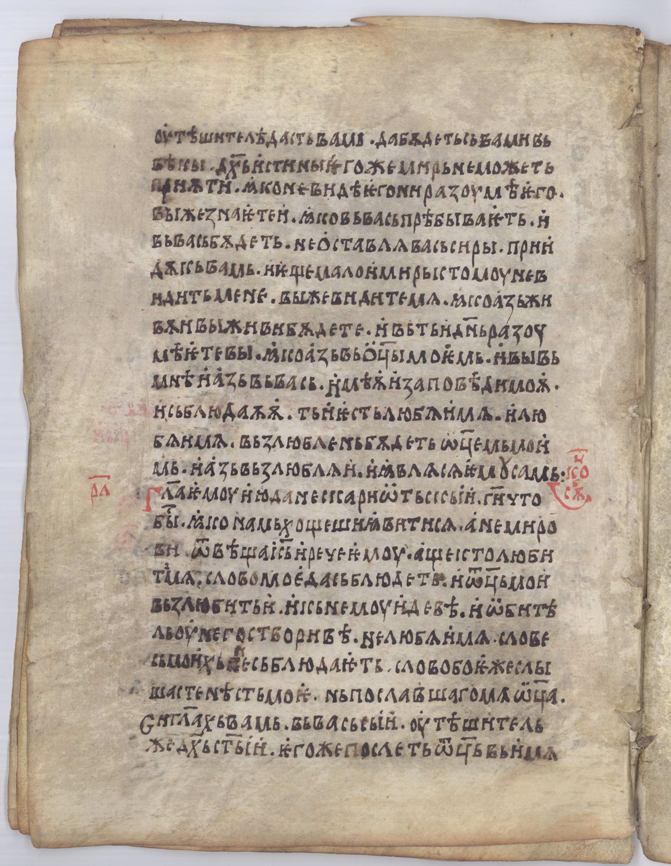 оу҆тѣшителѣдастьвамь · дабѫдетьсьвамивь
вѣкы · дх҃ьи҆стинныиѥгожемирьнеможеть
приѩти · ꙗконевидѣѥгониразоумѣѥго ·
выжезнаѥтеи · ꙗковьвасьпрѣбываѥть · и҆
вьвасьбѫдеть · неѻ҆ставлꙗвасьсиры · прии
дѫксьвамь · и҆ѥщемалои҆мирьктомоуневи
идитьмене · выжевидитемѧ · ꙗкоа҆зьжи
вѫивыживибѫдете · и҆вьтьдн҃ьразоу
мѣѥтевы · ꙗкоа҆зьвьѻ҆ц҃ымоѥмь · и҆вывь
мнѣи҆а҆зьвьвась · и҆мѣѫи҆заповѣдимоѫ ·
и҆сьблюдаѫѫ · тьи҆ѥстьлюбѫи҆мѧ · и҆лю
бѫи҆мѧ · вьзлюбленьбѫдетьѿц҃емьмои
мь · и҆а҆зьвьзлюблѫи · и҆ꙗвлѫсѧѥмоусамь :
рл
Гл҃аѥмоуи҆юданескариѡ҆тьскыи҆ · ги҃что
бы · ꙗконамьхощешиꙗвитисѧ · а҆немиро
ви · ѿвѣщаіс҃ьи҆речеѥмоу · а҆щектолюби
тьмѧ · словомоѥ҆дасьблюдеть · и҆ѿц҃ьмои
вьзлюбитьи · и҆кьнемоуи҆девѣ · и҆ѡ҆битѣ
льоу҆негостворивѣ · нелюбѫи҆мѧ · слове
сьмоихьнесьблюдаѥть · словобоѥжеслы
шастенѣстьмоѥ · ньпославшагомѧѿц҃а ·
Сиигл҃ахьвамь · вьвасьсыи҆ · оу҆тѣшитель
жедх҃ьст҃ыи҆ · ѥгожепослетьѿц҃ьвьи҆мѧ